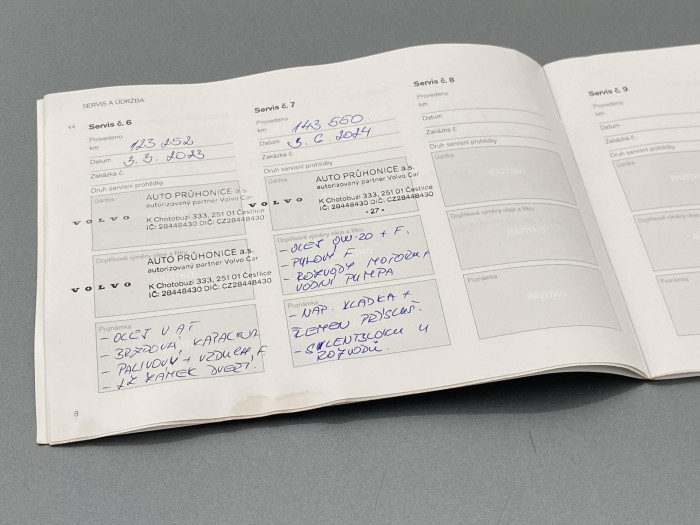 SERVIS A ÚDRŽBA
Servis č. 6
Provedeno
km 123 252
Datum 3.5. 2023
Zakázka č.
Druh servisní prohlídky
Údržba
AUTO PRŮHONICE a.s.
autorizovaný partner Volvo Car
VOLVO
K Chotobuzi 333, 251 01 Čestlice
IČ: 28448430 DIČ: CZ28448430
Doplňkové výměny oleje a filtru
AUTO PRŮHONICE a.s.
autorizovaný partner Volvo Car
VOLVO
K Chotobuzi 333, 251 01 Čestlice
IČ: 28448430 DIČ: CZ28448430
Poznámka
- OLEJ V AT
- BRZDOVÁ KAPALINA
- PALIVOVÝ + VZDUCH. F
- ZÁMEK DVEŘÍ.
8
Servis č. 7
Provedeno
km 143 550
Datum 3. 6. 2024
Zakázka č.
Druh servisní prohlídky
AUTO PRŮHONICE a.s.
autorizovaný partner Volvo Car
VOLVO
K Chotobuzi 333, 251 01 Čestlice
IČ: 28448430 DIČ: CZ28448430
- 27 -
Doplňkové výměny oleje a filtru
- OLEJ 0W-20 + F.
- PYLOVÝ F
- ROZVODY MOTORU +
VODNÍ PUMPA
Poznámka
- NAP. KLADKA +
ŘEMEN PŘÍSLUŠ.
- SILENTBLOKU U
ROZVODŮ.
Servis č. 8
Provedeno
km
Datum
Zakázka č.
Druh servisní prohlídky
Údržba
RAZÍTKO
Doplňkové výměny oleje a filtru
RAZÍTKO
Poznámka
RAZÍTKO
Servis č. 9
Provedeno
km
Datum
Zakázka č.
Druh servisní prohlídky
Údržba
Doplňkové výměny
Poznámka